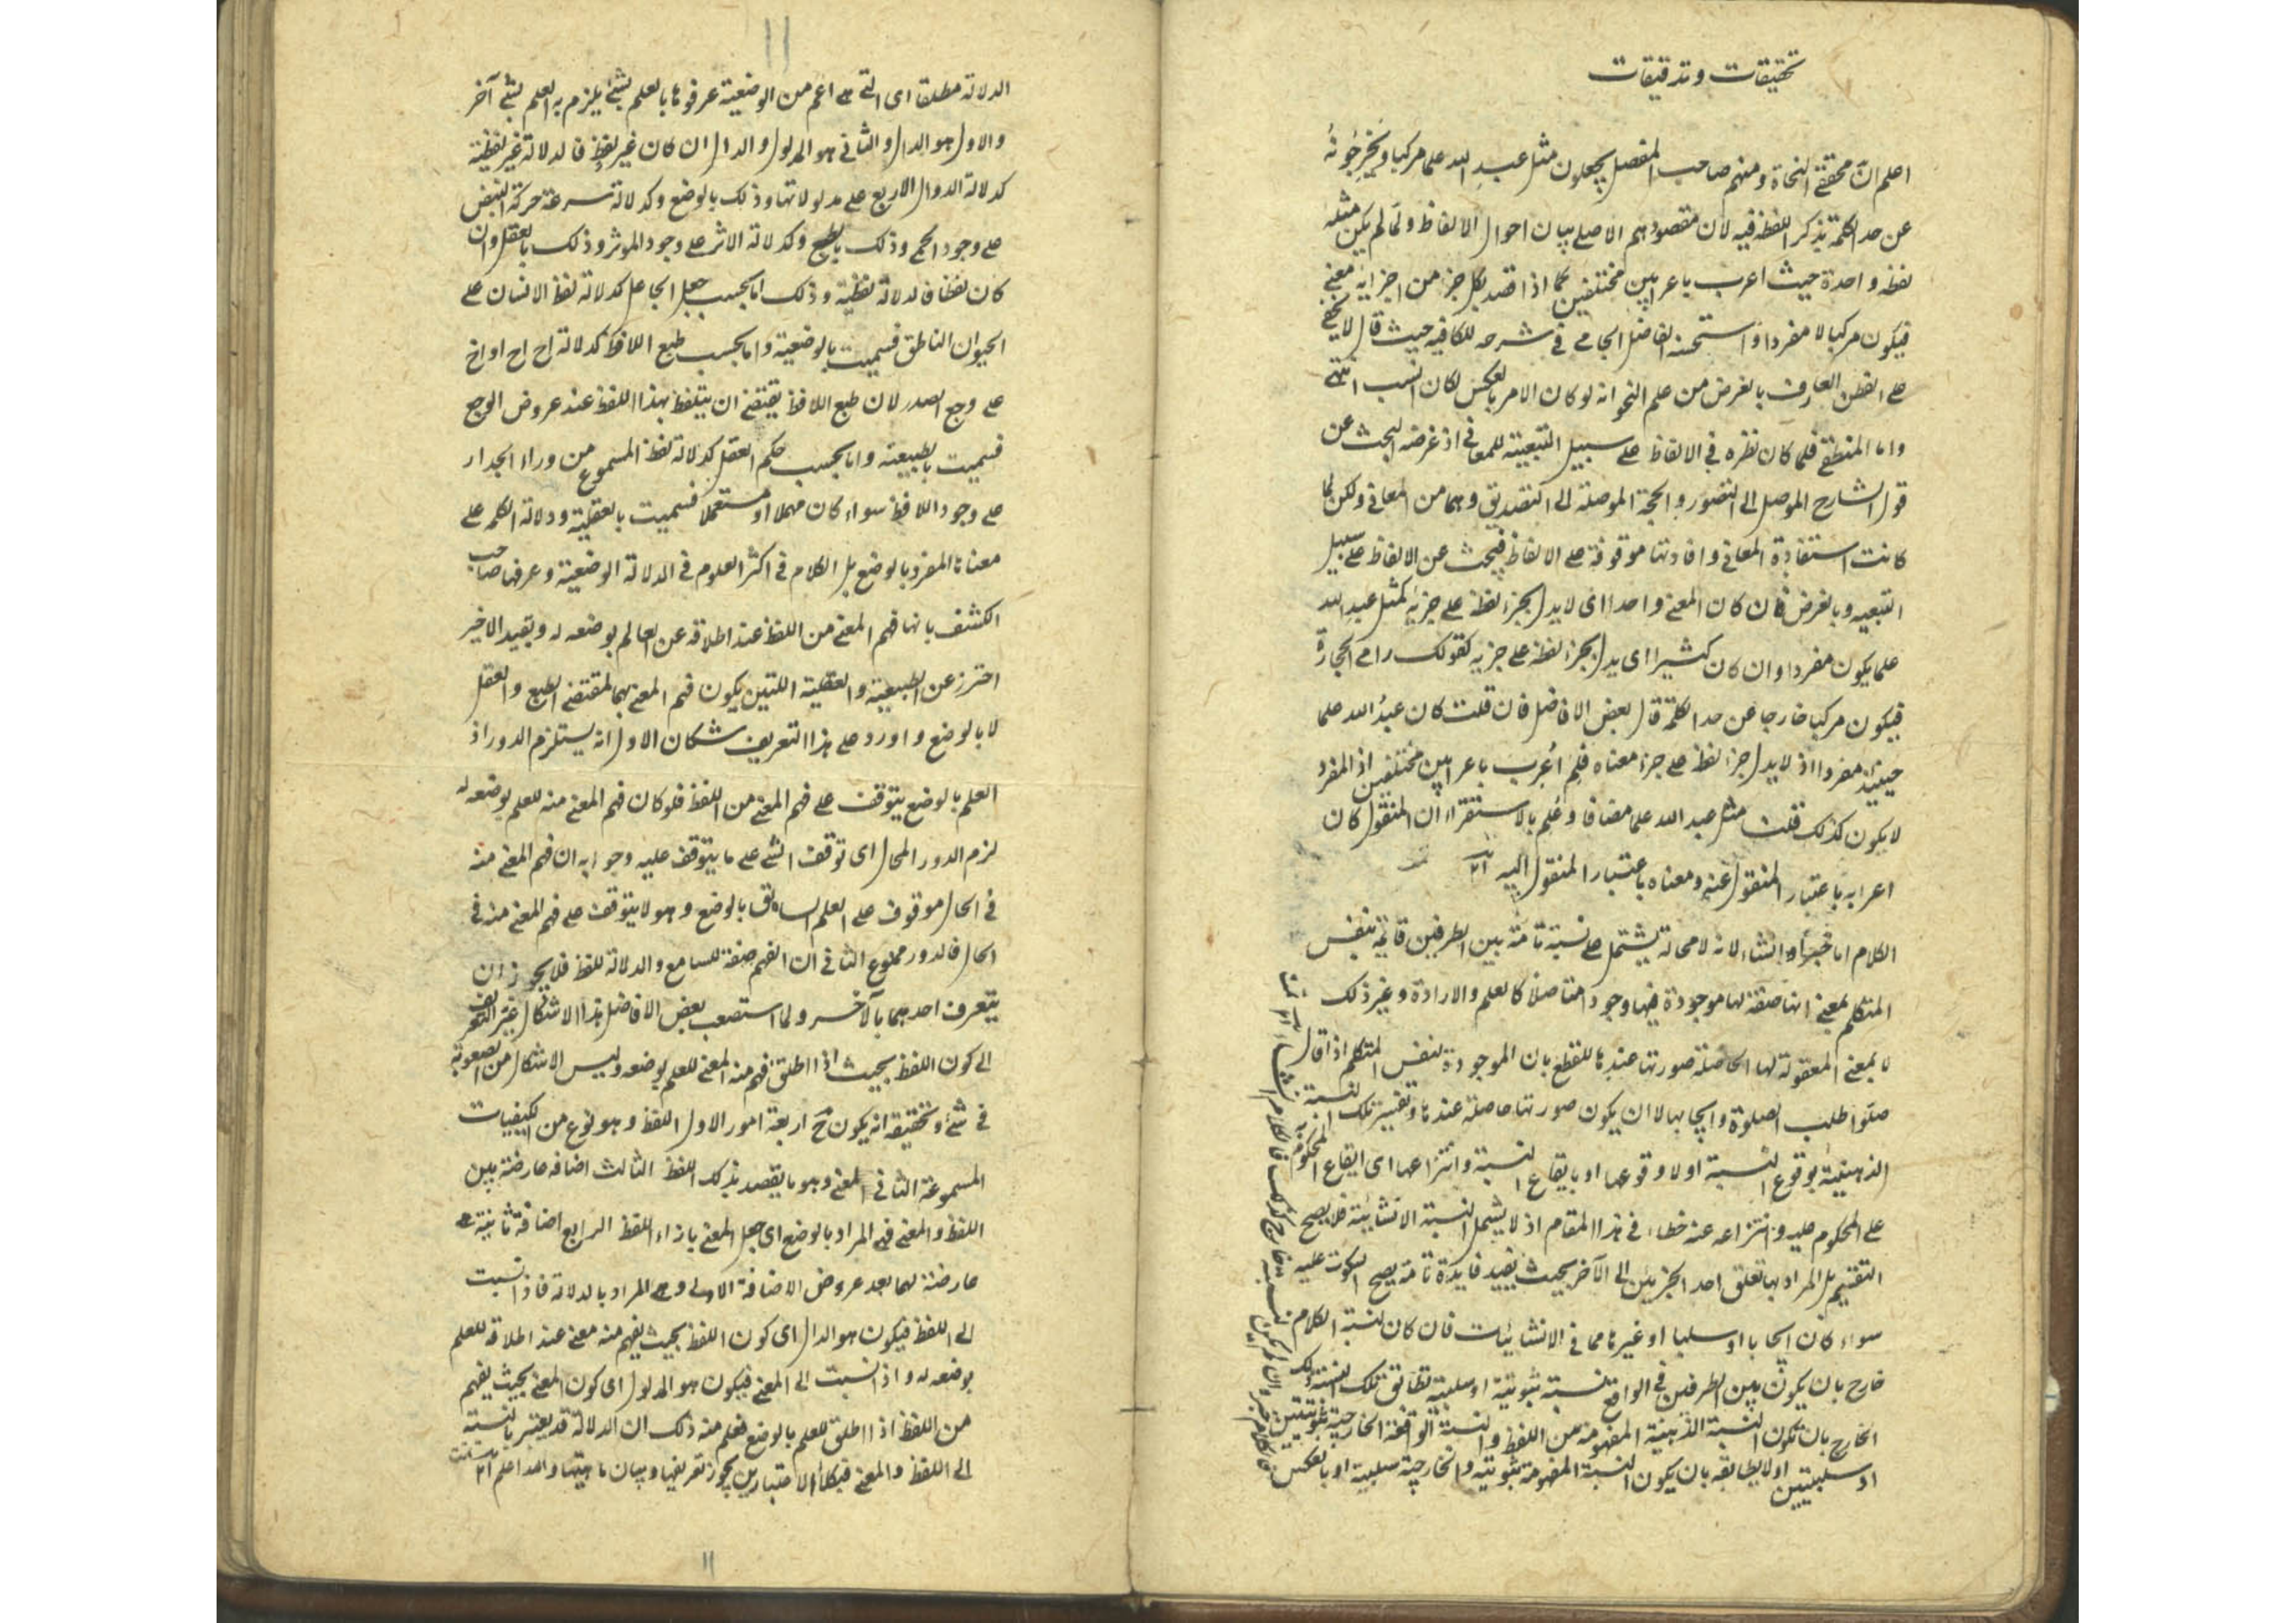 تحقيقات وتدقيقات
اعلم انّ محققى النحاة ومنهم صاحب المفصل يجعلون مثل عبدِ الله علما مركبا ويخرجونهُ
عن حد الكلمة بذكر اللفظة فيه لان مقصودهم الاصلى بيان احوال الالفاظ ولما لم يكن مثله
لفظة واحدة حيث اعرب باعرابين مختلفين كما اذا قصد بكل جزء من اجزائه معنى
فيكون مركبا لا مفردا واستحسنه الفاضل الجامى فى شرحه للكافيه حيث قال لا يخفى
على الفطن العارف بالغرض من علم النحو انه لو كان الامر بالعكس لكان انسب انتهى
واما المنطقى فلما كان نظره فى الالفاظ على سبيل التبعية للمعانى اذ غرضه البحث عن
قول الشارح الموصل الى التصور والحجة الموصلة الى التصديق وهما من المعانى ولكن لما
كانت استفادة المعانى وافادتها موقوفة على الالفاظ فيبحث عن الالفاظ على سبيل
التبعيه وبالغرض فان كان المعنى واحدا اى لا يدل بجزء لفظه على جزئه كمثل عبد الله
علما يكون مفردا وان كان كثيرا اى يدل بجزء لفظه على جزيه كقولك رامى الحجارة
فيكون مركبا خارجا عن حد الكلمة قال بعض الافاضل فان قلت كان عبدُ الله علما
حينئذ مفردا اذ لا يدل جزء لفظه على جزء معناه فلِمَ اُعرب باعرابين مختلفين اذ المفرد
لا يكون كذلك قلت مثل عبد الله علما مضافا وعُلم بالاستقراء ان المنقول كان
اعرابه باعتبار المنقول عنه ومعناه باعتبار المنقول اليه
الكلام اما خبر او انشاء لانه لا محالة يشتمل على نسبة تامة بين الطرفين قائمة بنفس
المتكلم بمعنى انها صفة لها موجودة فيها وجودا متاصلا كالعلم والارادة وغير ذلك
لا بمعنى المعقولة لها الحاصلة صورتها عندها للقطع بان الموجودة لنفس المتكلم اذا قال
صلوا طلب الصلوة وايجابها لا ان يكون صورتها حاصلة عندها وتفسير تلك النسبة
الذهنية بوقوع النسبة او لا وقوعها او بايقاع النسبة وانتزاعها اى ايقاع المحكوم به
على المحكوم عليه وانتزاعه عنه خطاء فى هذا المقام اذ لا يشمل النسبة الانشائية فلا يصح
التقسيم بل المراد بها تعلق احد الجزئين الى الآخر بحيث يفيد فايدة تامة يصح السكوت عليه
سواء كان ايجابا او سلبا او غيرها مما فى الانشائيات فان كان لنسبة الكلام
خارج بان يكون بين الطرفين فى الواقع نسبة ثبوتية او سلبية تطابق تلك النسبة ذلك
الخارج بان تكون النسبة الذهنية المفهومة من اللفظ والنسبة الواقعة الخارجية ثبوتيتين
او سلبيتين او لا يطابقه بان يكون النسبة المفهومة ثبوتية والخارجية سلبية او بالعكس
فالكلام خبر وان لم يكن لنسبته خارج كذلك فالكلام انشاء
١١
الدلالة مطلقا اى التى هى اعم من الوضعية عرفوها بالعلم بشئ يلزم به العلم بشئ آخر
والاول هو الدال والثانى هو المدلول والدال ان كان غير لفظ فالدلالة غير لفظية
كدلالة الدوال الاربع على مدلولاتها وذلك بالوضع وكدلالة سرعة حركة النبض
على وجود الحمى وذلك بالطبع وكدلالة الاثر على وجود الموثر وذلك بالعقل وان
كان لفظا فالدلالة لفظية وذلك اما بحسب جعل الجاعل كدلالة لفظ الانسان على
الحيوان الناطق فسميت بالوضعية واما بحسب طبع اللافظ كدلالة اح اح او اخ
على وجع الصدر لان طبع اللافظ يقتضى ان يتلفظ بهذا اللفظ عند عروض الوجع
فسميت بالطبيعية واما بحسب حكم العقل كدلالة لفظ المسموع من وراء الجدار
على وجود اللافظ سواء كان مهملا او مستعملا فسميت بالعقلية ودلالة الكلمه على
معناها المفرد بالوضع بل الكلام فى اكثر العلوم فى الدلالة الوضعية وعرفها صاحب
الكشف بانها فهم المعنى من اللفظ عند اطلاقه عن العالم بوضعه له وبقيد الاخير
احترز عن الطبيعية والعقلية اللتين يكون فهم المعنى بهما لمقتضى الطبع والعقل
لا بالوضع واورد على هذا التعريف شكان الاول انه يستلزم الدور اذ
العلم بالوضع يتوقف على فهم المعنى من اللفظ فلو كان فهم المعنى منه للعلم بوضعه له
لزم الدور المحال اى توقف الشئ على ما يتوقف عليه وجوابه ان فهم المعنى منه
فى الحال موقوف على العلم السابق بالوضع وهو لا يتوقف على فهم المعنى منه فى
الحال فالدور ممنوع الثانى ان الفهم صفة للسامع والدلالة للفظ فلا يجوز ان
يتعرف احدهما بالآخر ولما استصعب بعض الافاضل هذا الاشكال غيّر التعريف
الى كون اللفظ بحيث اذا اطلق فهم منه المعنى للعلم بوضعه وليس الاشكال من الصعوبة
فى شئ وتحقيقه انه يكون ح اربعة امور الاول اللفظ وهو نوع من الكيفيات
المسموعة الثانى المعنى وهو ما يقصد بذلك اللفظ الثالث اضافة عارضة بين
اللفظ والمعنى فهى المراد بالوضع اى جعل المعنى بازاء اللفظ الرابع اضافة ثانية
عارضة لهما بعد عروض الاضافة الاولى وهى المراد بالدلالة فاذا نسبت
الى اللفظ فيكون هو الدال اى كون اللفظ بحيث يفهم منه معنى عند اطلاقه للعلم
بوضعه له واذا نسبت الى المعنى فيكون هو المدلول اى كون المعنى بحيث يفهم
من اللفظ اذا اطلق للعلم بالوضع فعلم منه ذلك ان الدلالة قد يعتبر بالنسبة
الى اللفظ والمعنى فبكلا الاعتبارين يجوز تعريفها وبيان ماهيتها والله اعلم
١١